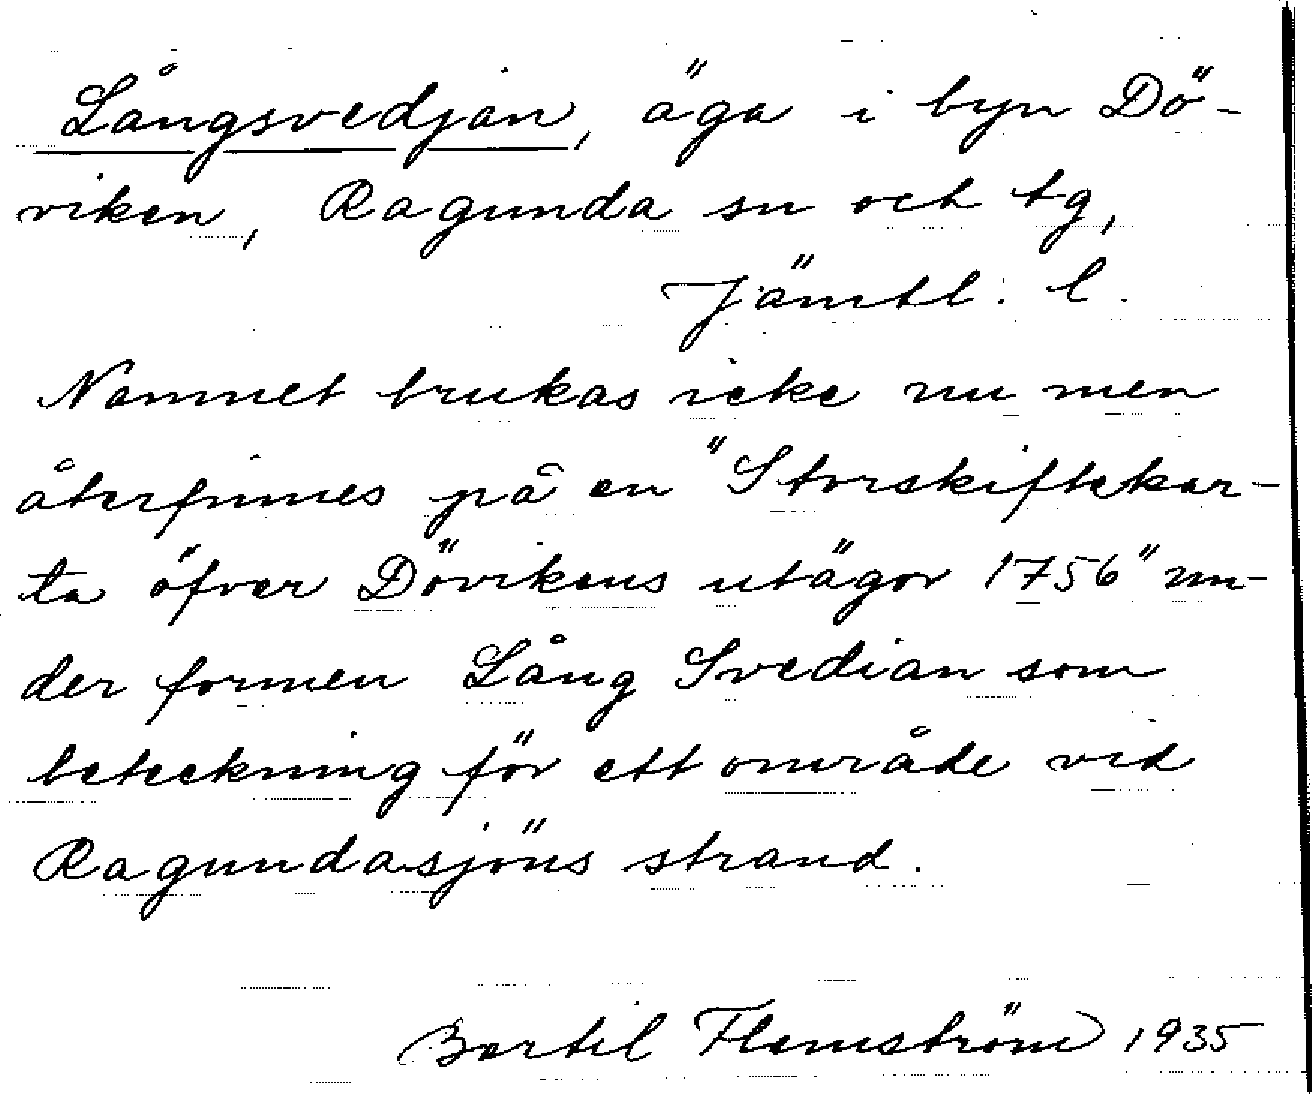 Långsvedjan, äga i byn Dö-
viken, Ragunda sn och tg,
Jämtl. l.
Namnet brukas icke nu men
återfinnes på en "Storskifteskar-
ta öfver Dövikens utägor 1756" un-
der formen Lång Svedian som
beteckning för ett område vid
Ragundasjöns strand.
Bertil Flemström 1935